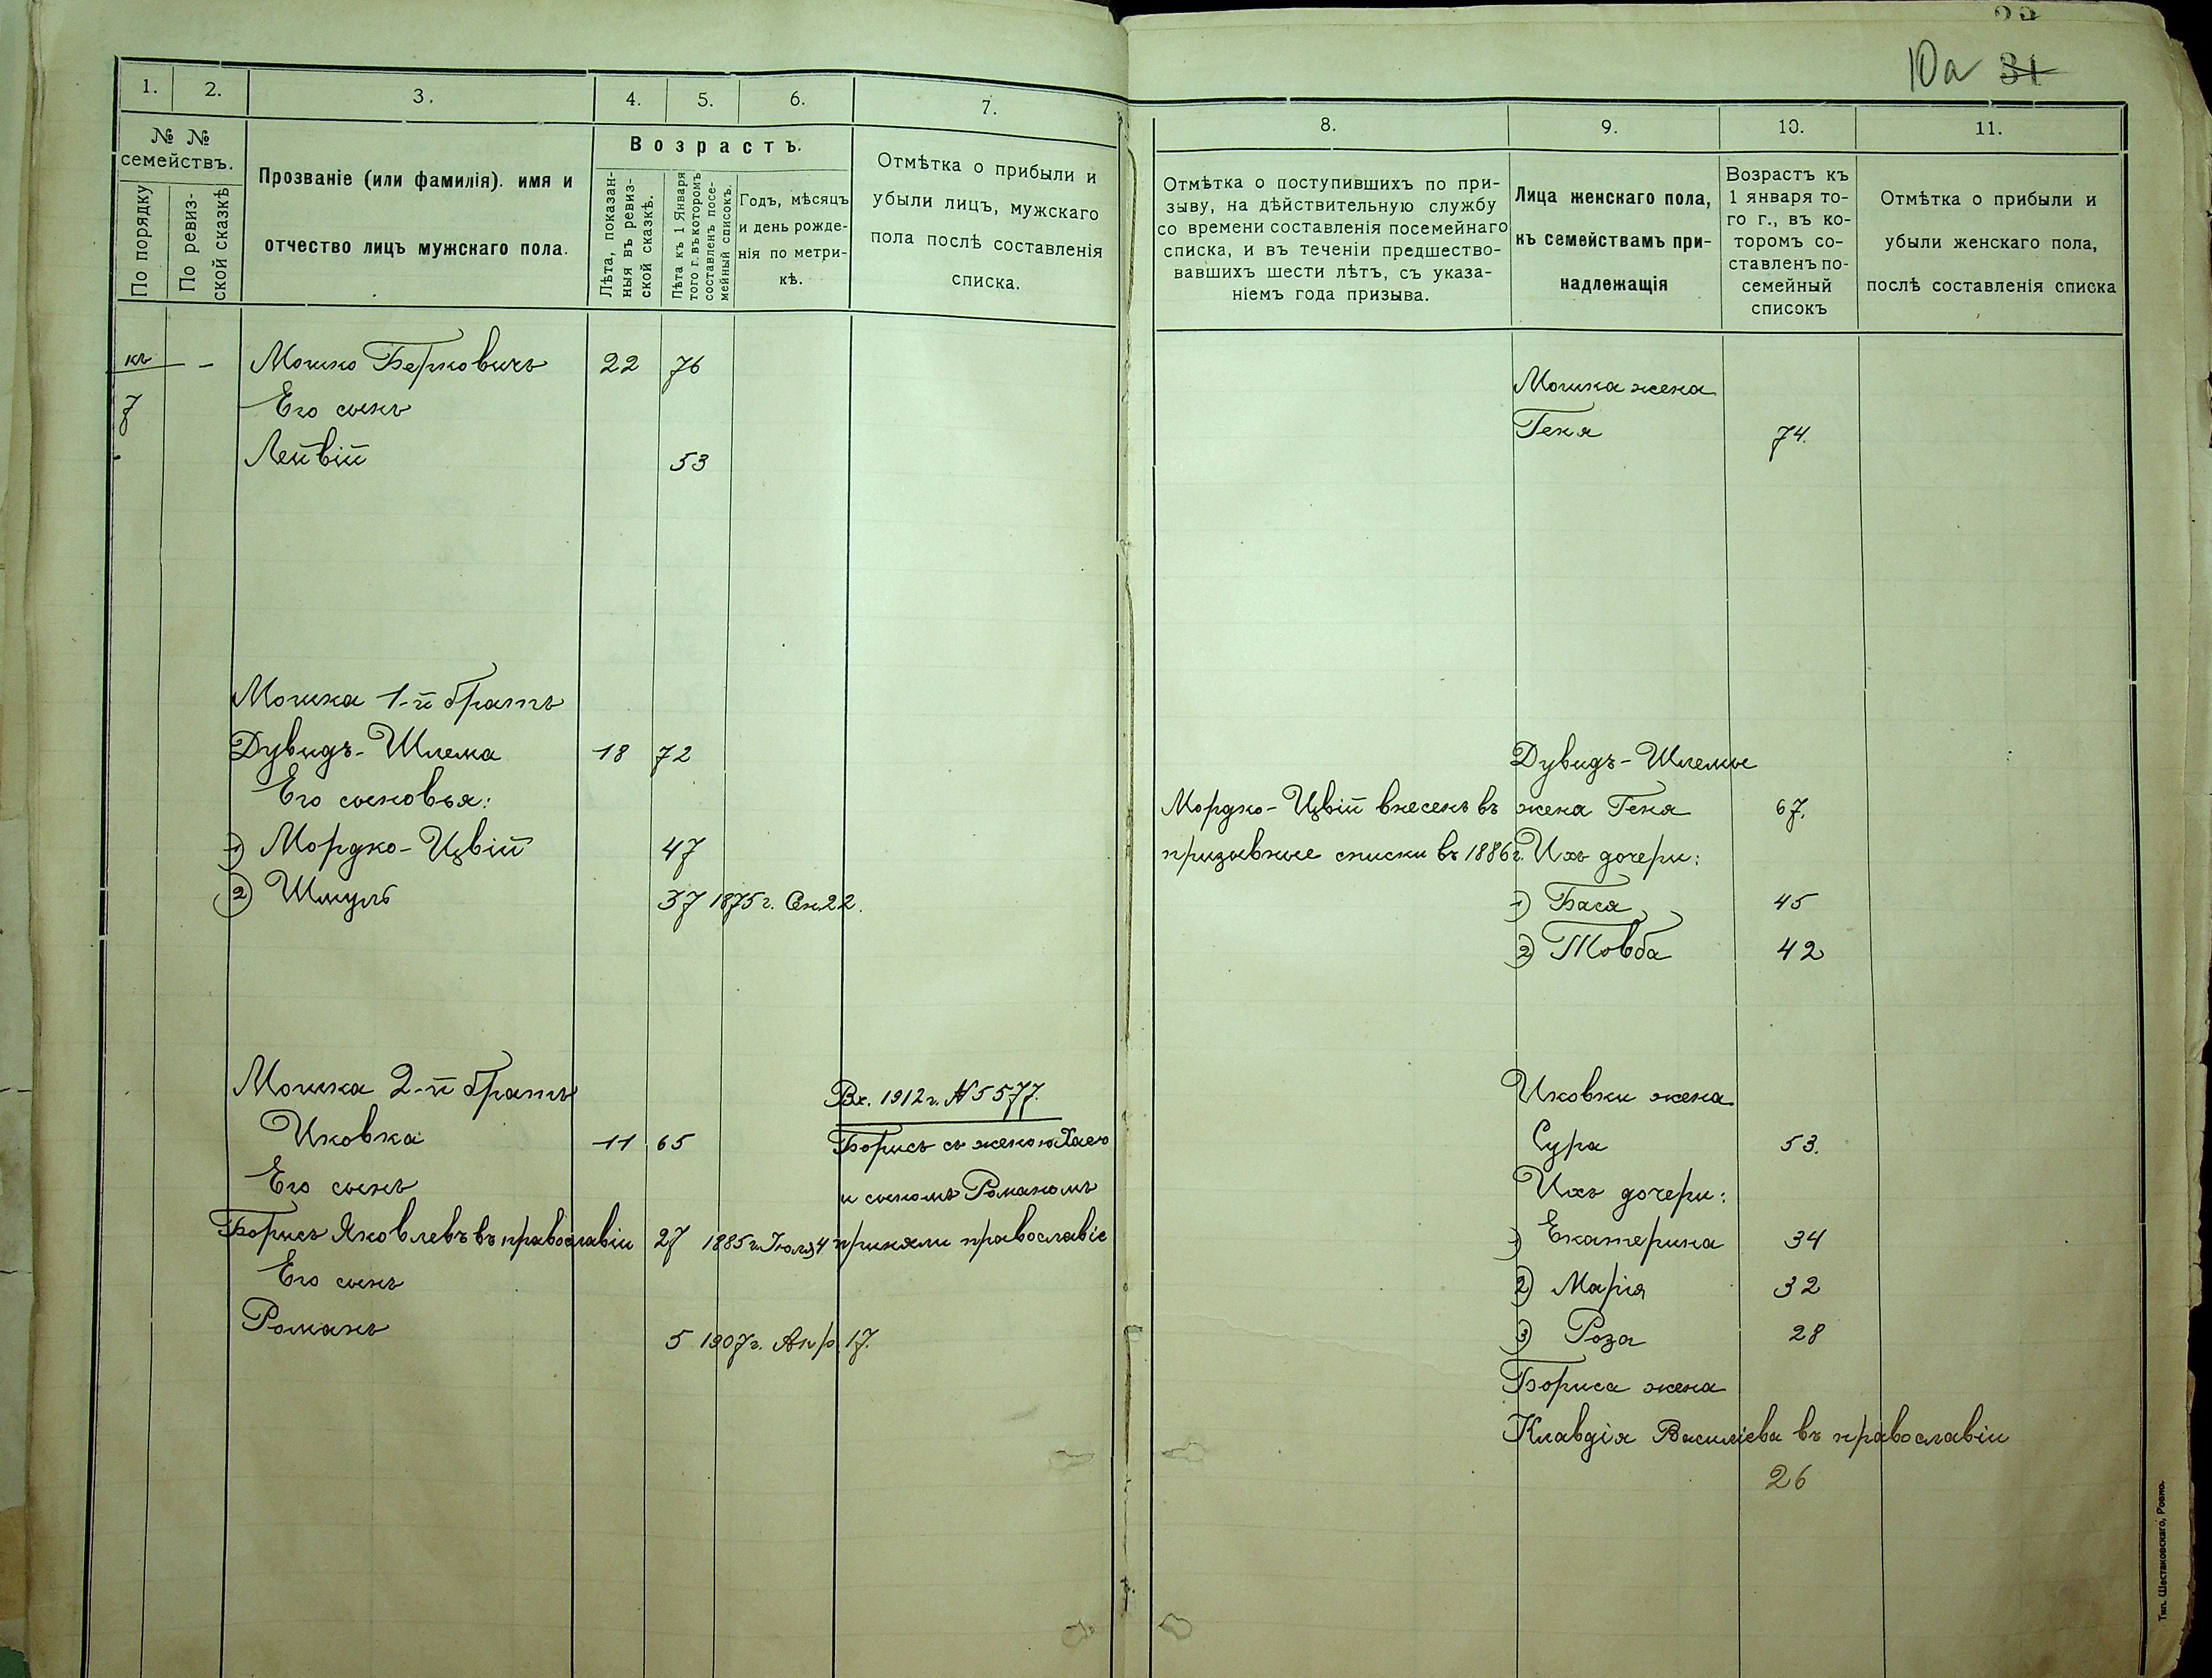 10а 31
1.
2.
3.
4.
5.
6.
7.
№ №
семействъ.
По порядку
По ревиз-
ской сказкѣ
Прозваніе (или фамилія). имя и
отчество лицъ мужскаго пола.
Возрастъ.
Лѣта, показан-
ныя въ ревиз-
ской сказкѣ.
Лѣта къ 1 Января
того г. въ которомъ
составленъ посе-
мейный списокъ.
Годъ, мѣсяцъ
и день рожде-
нія по метри-
кѣ.
Отмѣтка о прибыли и
убыли лицъ, мужскаго
пола послѣ составленія
списка.
къ
7
-
Мошко Берковичъ 22 76
Его сынъ
Лейвій 53
Мошка 1-й братъ
Дувидъ-Шлема 18 72
Его сыновья:
1) Мордко-Цвій 47
2) Шмуль 37 1875 г. Сен. 22.
Мошка 2-й братъ
Ицковка 11 65
Его сынъ
Борисъ Яковлевъ въ православіи 27 1885 г. Іюля 4
Его сынъ
Романъ 5 1907 г. Апр. 17.
Вх. 1912 г. № 5577.
Борисъ съ женою Хаею
и сыномъ Романомъ
приняли православіе
8.
9.
10.
11.
Отмѣтка о поступившихъ по при-
зыву, на дѣйствительную службу
со времени составленія посемейнаго
списка, и въ теченіи предшество-
вавшихъ шести лѣтъ, съ указа-
ніемъ года призыва.
Лица женскаго пола,
къ семействамъ при-
надлежащія
Возрастъ къ
1 января то-
го г., въ ко-
торомъ со-
ставленъ по-
семейный
списокъ
Отмѣтка о прибыли и
убыли женскаго пола,
послѣ составленія списка
Мошка жена
Геня 74.
Мордко-Цвій внесенъ въ
призывные списки въ 1886 г.
Дувидъ-Шлемы
жена Геня 67.
Ихъ дочери:
1) Бася 45
2) Товба 42
Ицковки жена
Сура 53.
Ихъ дочери:
1) Екатерина 34
2) Марія 32
3) Роза 28
Бориса жена
Клавдія Василіева въ православіи
26
Тип. Шестаковскаго, Ровно.